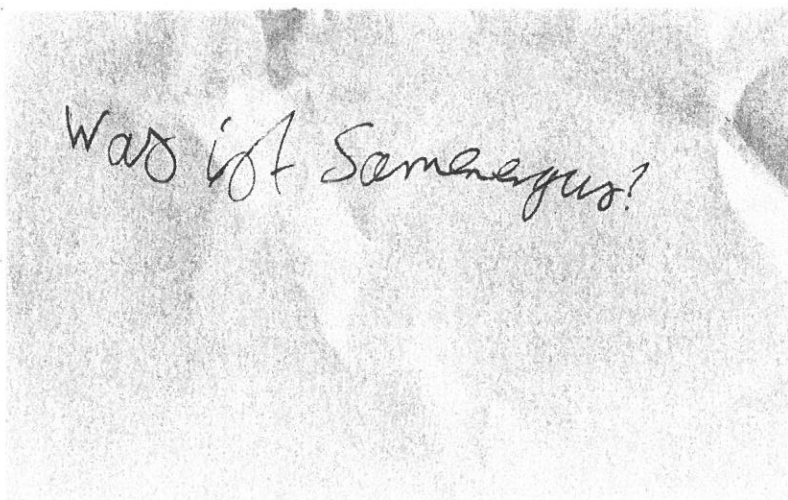 Was ist Samenerguss?